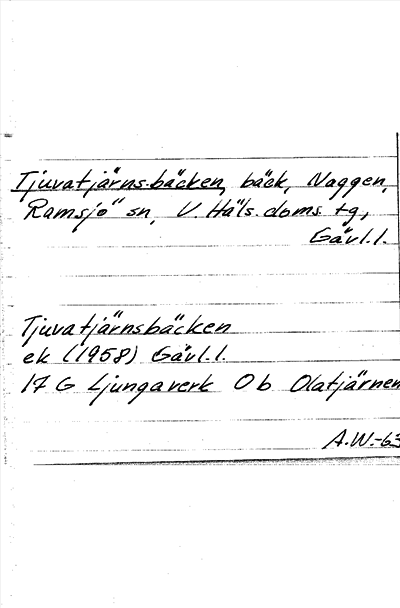 Tjuvatjärnsbäcken, bäck, Naggen,
Ramsjö sn, V. Häls. doms. tg,
Gävl.l.
Tjuvatjärnsbäcken
ek (1958) Gävl.l.
17 G Ljungaverk 0 b Olatjärnen
A.W.-63